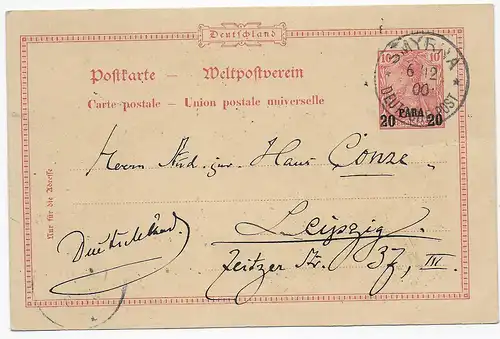 Deutschland
Postkarte — Weltpostverein
Carte postale — Union postale universelle
SMYRNA
6 12
00
DEUTSCHE POST
10 10
20 PARA 20
Nur für die Adresse
Herrn stud. jur. Hans Conze
Leipzig.
Deutschland.
Zeitzer Str. 37, III.